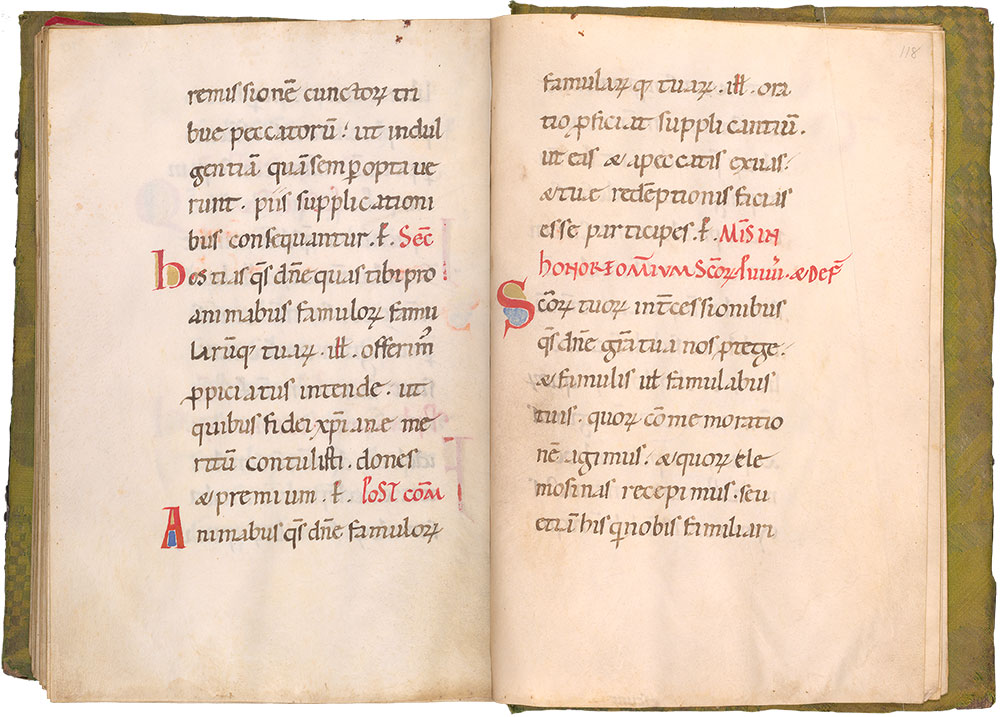 remissionē cunctoꝝ tri
bue peccatorū! ut indul
gentiā quāsemꝑoptaue
runt. piis supplicationi
bus consequantur. ꝑ. Sec̄
hostias qs̄ dn̄e quas tibi pro
animabus famuloꝝ famu
larūq; tuaꝝ. ill̄. offerim̄
ꝓpiciatus intende. ut
quibus fidei xp̄iane me
ritū contulisti. dones
& premium. ꝑ. Post com̄
Animabus qs̄ dn̄e famuloꝝ
118
famulaꝝ q; tuaꝝ. ill̄. ora
tio ꝓficiat supplicantiū.
ut eis & apeccatis exuas.
&tuę redēptionis facias
esse participes. ꝑ. Mis̄ in
honore omnium Sc̄oꝝ & Def̄
Sc̄oꝝ tuoꝝ int̄cessionibus
qs̄ dn̄e gr̄a tua nos ꝓtege.
& famulis ut̄ famulabus
tuis. quoꝝ cōmemoratio
nē agimus. & quoꝝ ele
mosinas recepimus. seu
etiā his qui nobis familiari